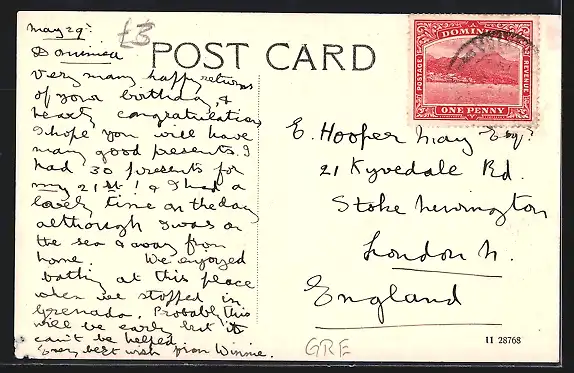 May 29th
£3
POST CARD
Dominica
Very many happy returns
of your birthday, &
hearty congratulations
I hope you will have
many good presents. I
had 30 presents for
my 21st! & I had a
lovely time on the day
although I was on
the sea & away from
home. We enjoyed
bathing at this place
when we stopped in
Grenada. Probably this
will be early but it
can't be helped
Every best wish from Winnie.
DOMINI
POSTAGE
REVENUE
ONE PENNY
E. Hooper May Esq.
21 Kyverdale Rd.
Stoke Newington
London N.
England
GRE
11 28768